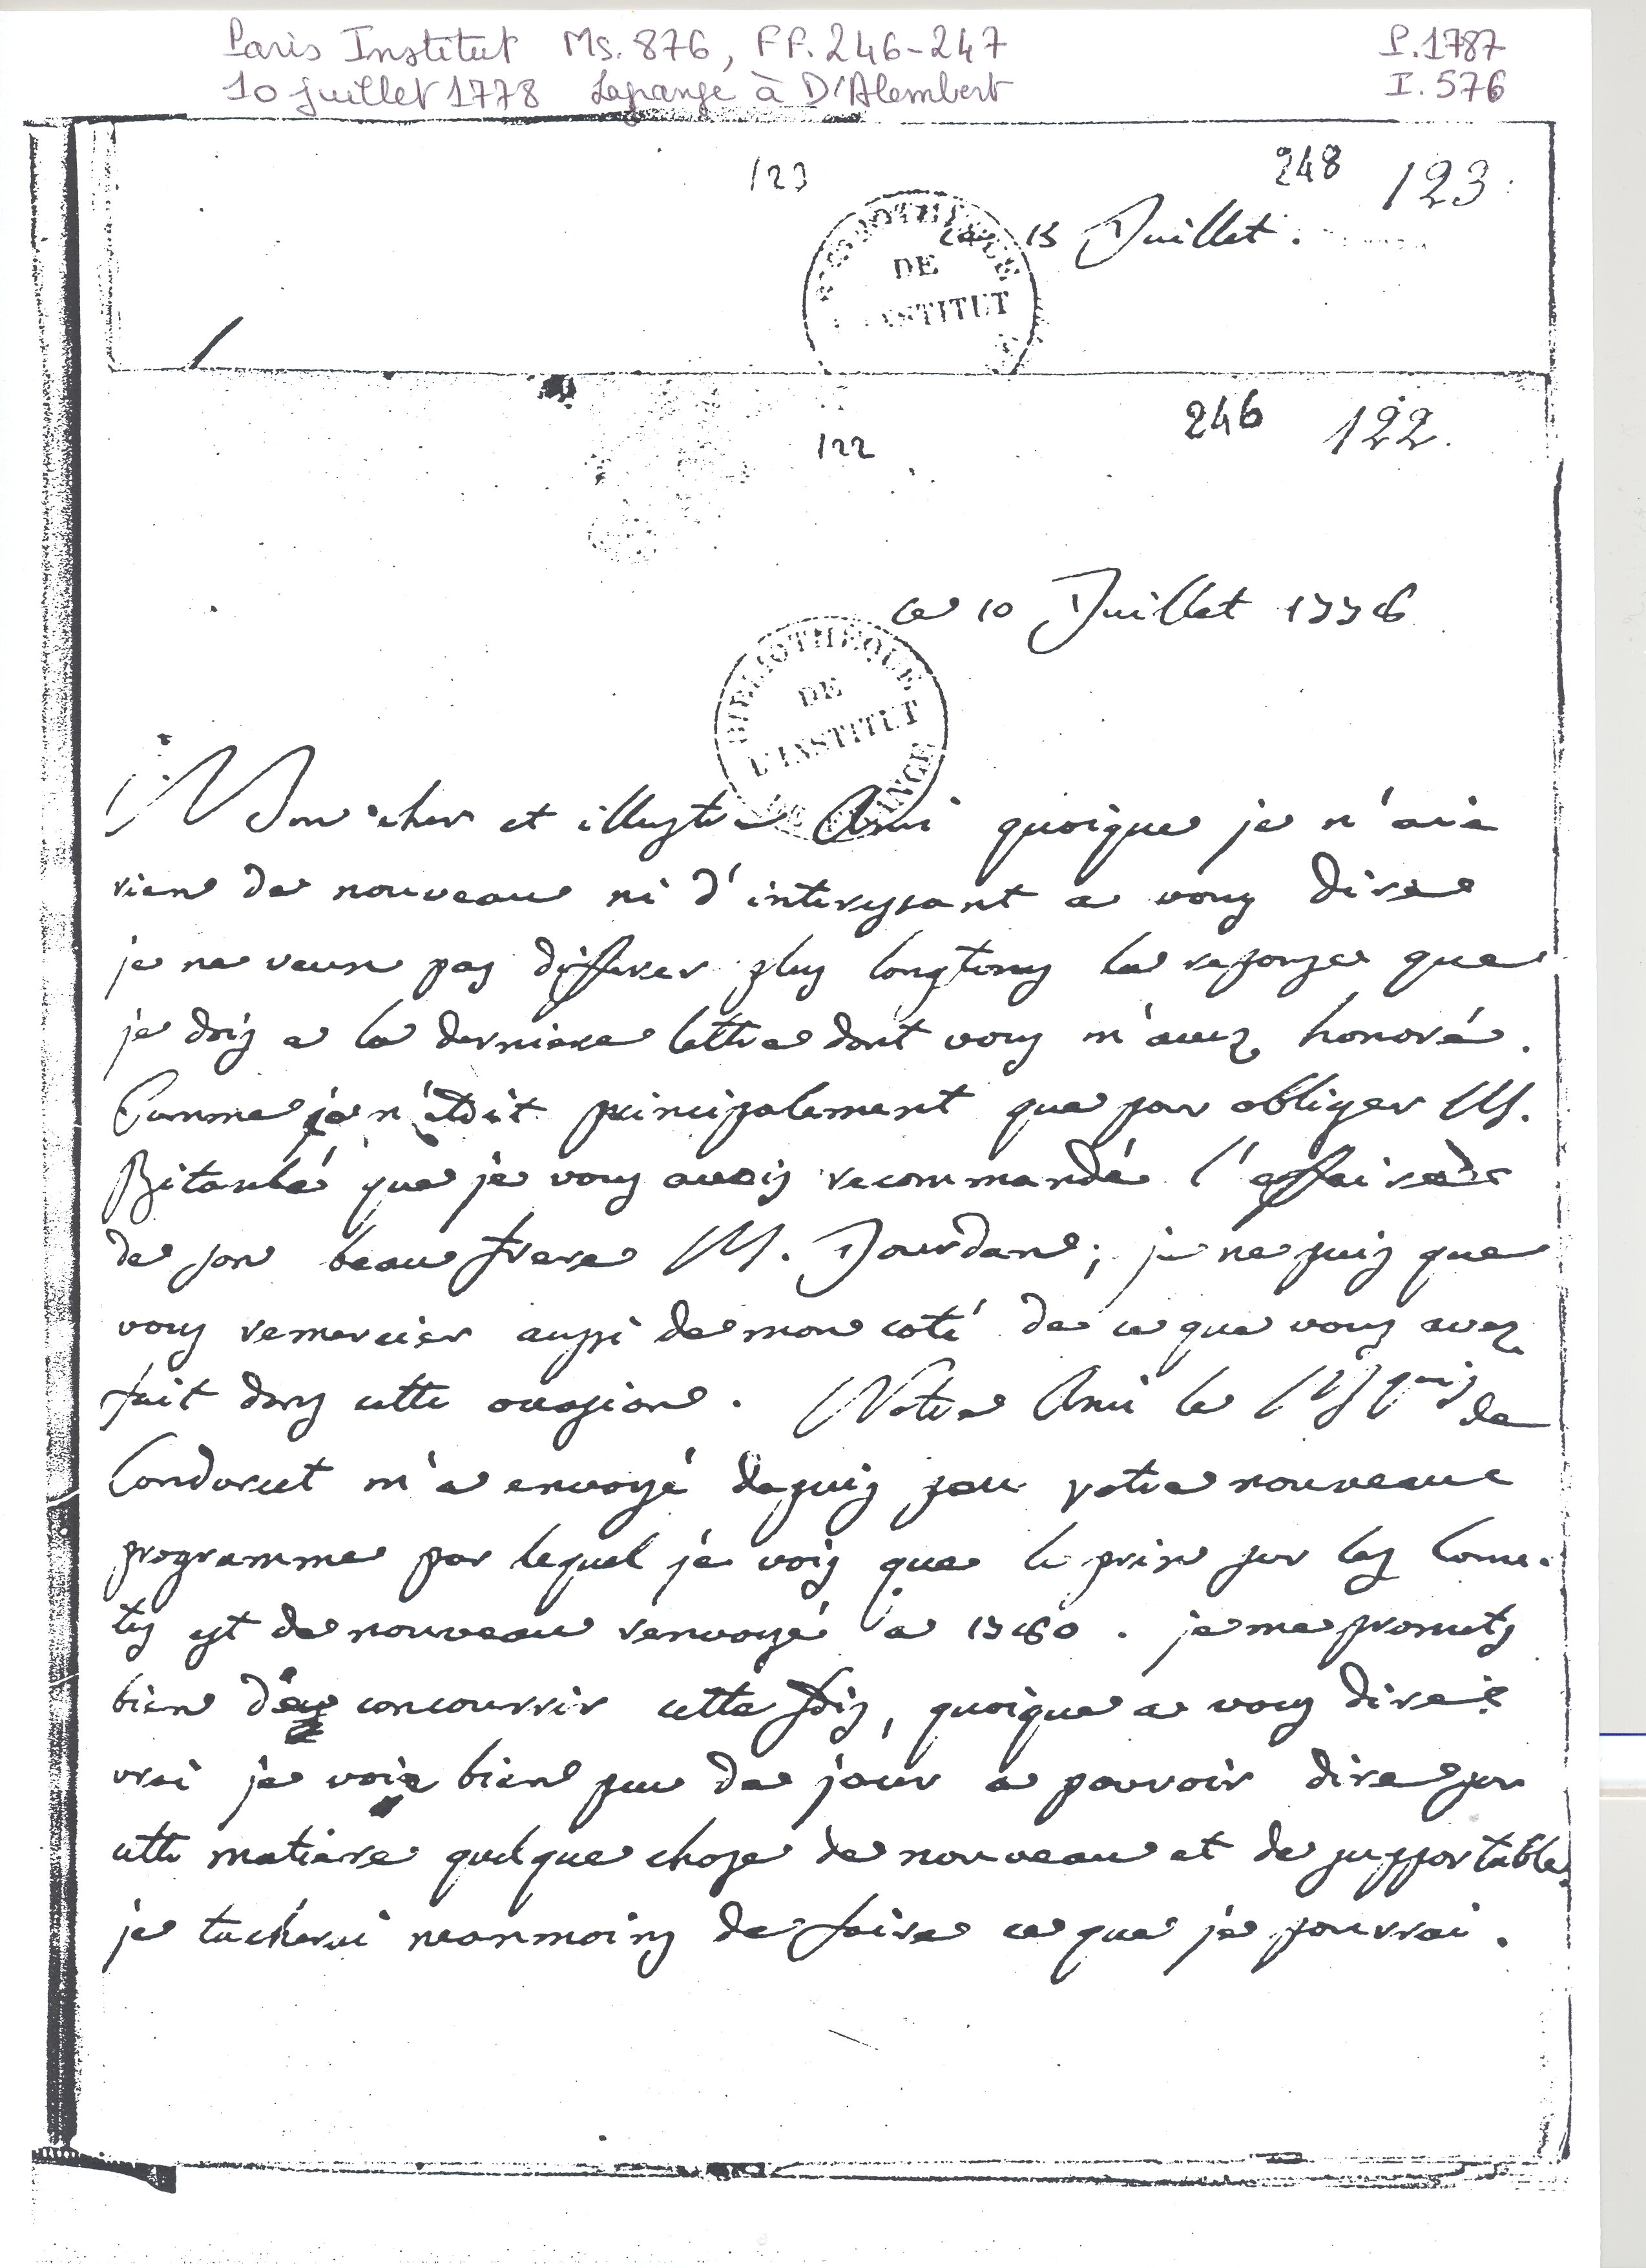 Paris Institut Ms. 876, FF. 246-247 P.1787
10 juillet 1778 Lagrange à D'Alembert I. 576
123 248 123
ce 15 Juillet.
BIBLIOTHEQUE
DE
L'INSTITUT
246 122.
122
ce 10 Juillet 1778
BIBLIOTHEQUE
DE
L'INSTITUT
DE FRANCE
Mon cher et illustre Ami quoique je n'aie
rien de nouveau ni d'interessant a vous dire
je ne veux pas differer plus longtems la reponse que
je dois a la derniere lettre dont vous m'avez honoré.
Comme ce n'étoit principalement que pour obliger M.
Bitaubé que je vous avois recommandé l'affaire de
de son beau frere M. Jourdan; je ne puis que
vous remercier aussi de mon coté de ce que vous avez
fait dans cette occasion. Notre Ami le M.quis de
Condorcet m'a envoyé depuis peu votre nouveau
programme par lequel je vois que le prix sur les Come-
tes est de nouveau renvoyé a 1780. je me promets
bien d'y concourrir cette fois, quoique a vous dire
vrai je voie bien peu de jour a pouvoir dire sur
cette matiere quelque chose de nouveau et de supportable.
je tacherai neanmoins de faire ce que je pourrai.